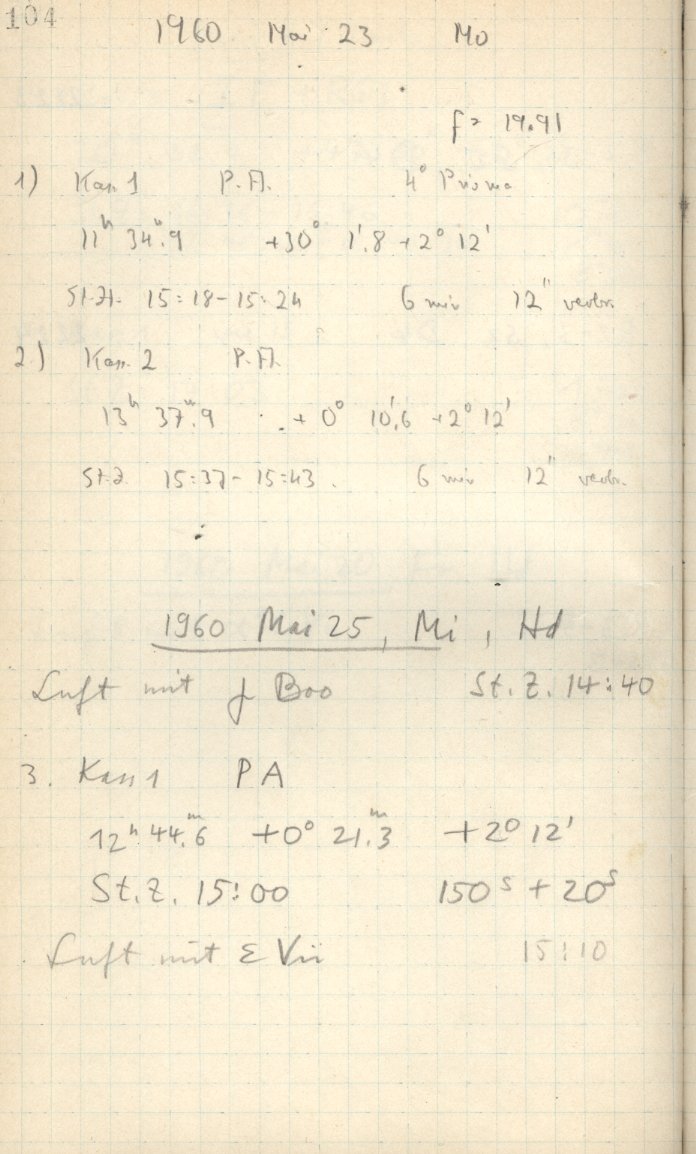 104
1960 Mai 23 Mo
f = 19.91
1) Kass 1 P.A. 4° Prisma
11ʰ 34ᵐ.9 +30° 1'.8 +2° 12'
St.Zt. 15:18-15:24 6 min 12"
2) Kass. 2 P.A.
13ʰ 37ᵐ.9 + 0° 10'.6 +2° 12'
St.Z. 15:37-15:43. 6 min 12"
1960 Mai 25, Mi, Hd
Luft mit Boo St. Z. 14:40
3. Kass 1 P A
12ʰ 44ᵐ.6 +0° 21ᵐ.3 +2° 12'
St. Z. 15:00 150ˢ + 20ˢ
Luft mit ε Vir 15:10